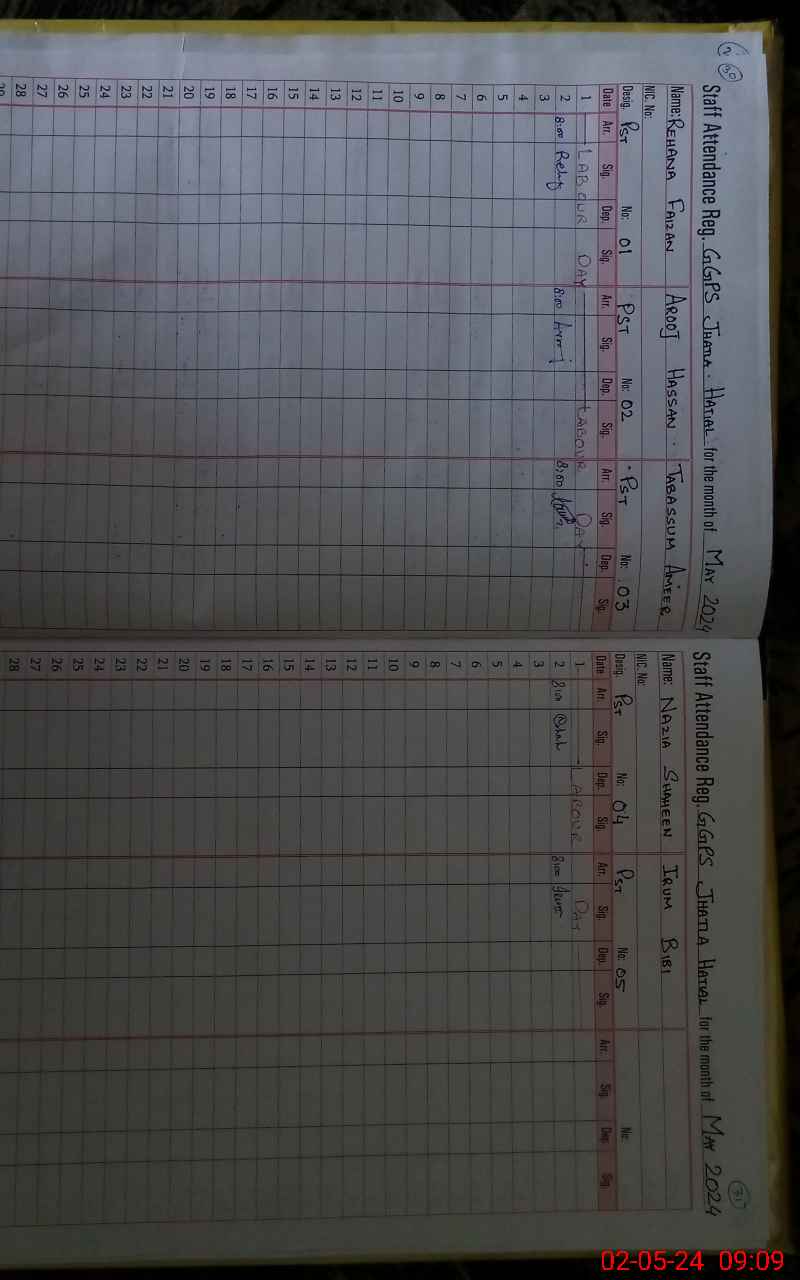 30
Staff Attendance Reg. GGPS JHATLA HATIAL for the month of MAY 2024
Name: REHANA FAIZAN AROOJ HASSAN TABASSUM AMEER
NIC. No:
Desig. PST No: 01 PST No: 02 PST No: 03
Date Arr. Sig. Dep. Sig. Arr. Sig. Dep. Sig. Arr. Sig. Dep. Sig.
1 LABOUR DAY LABOUR DAY
2 8:00 8:00 Arooj 8:00
3
4
5
6
7
8
9
10
11
12
13
14
15
16
17
18
19
20
21
22
23
24
25
26
27
28
31
Staff Attendance Reg. GGPS JHATLA HATIAL for the month of MAY 2024
Name: NAZIA SHAHEEN IRUM BIBI
NIC. No:
Desig. PST No: 04 PST No: 05 No:
Date Arr. Sig. Dep. Sig. Arr. Sig. Dep. Sig. Arr. Sig. Dep. Sig.
1 LABOUR DAY
2 8:00 8:00
3
4
5
6
7
8
9
10
11
12
13
14
15
16
17
18
19
20
21
22
23
24
25
26
27
28
02-05-24 09:09